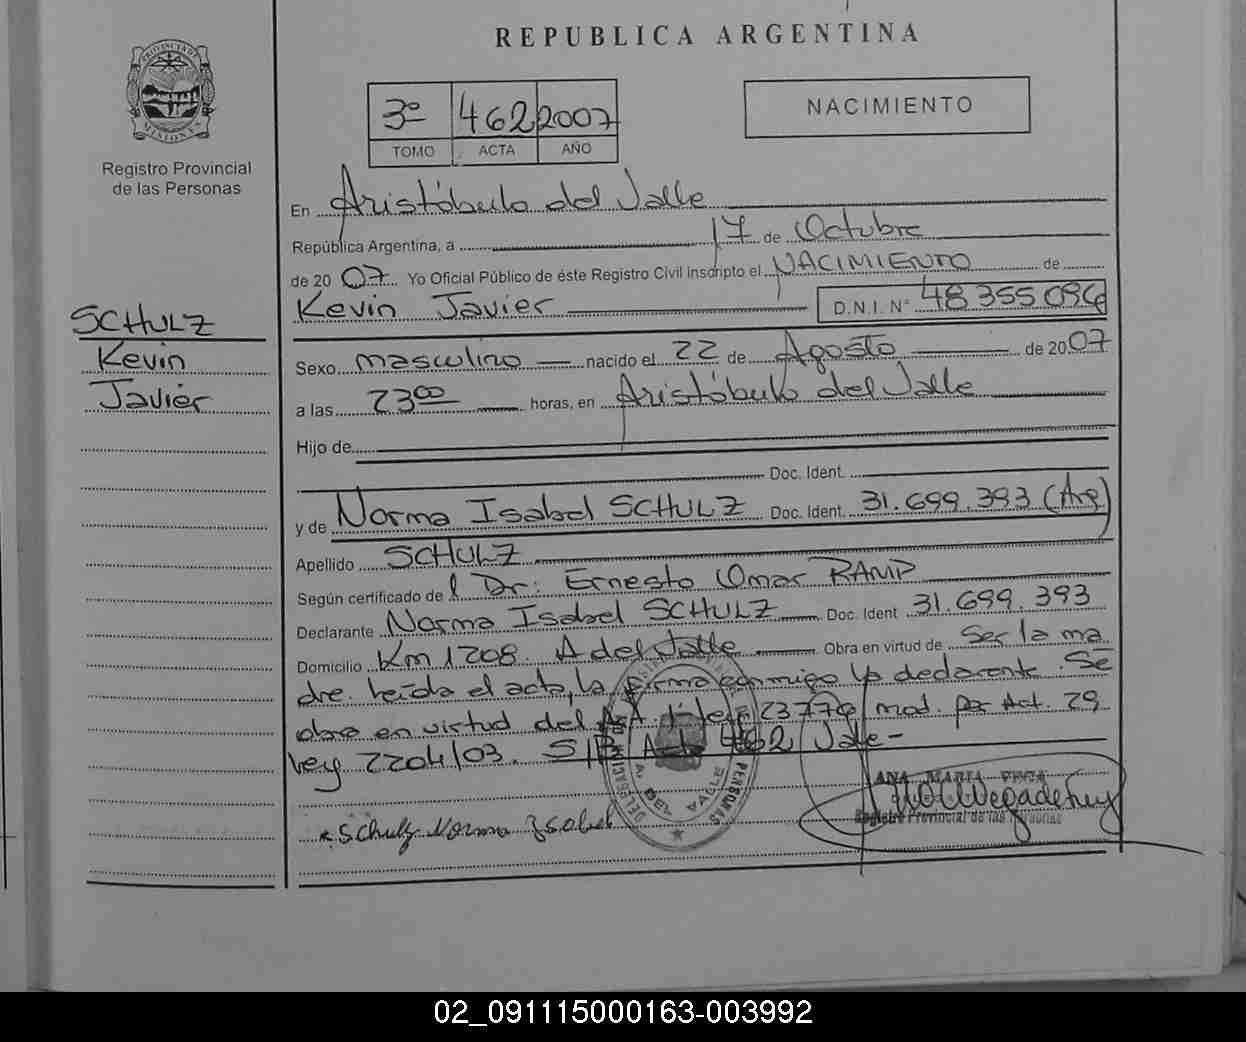 REPUBLICA ARGENTINA
PROVINCIA DE
MISIONES
Registro Provincial
de las Personas
3º 462 2007
TOMO ACTA AÑO
NACIMIENTO
En Aristóbulo del Valle
República Argentina, a 17 de Octubre
de 2007 Yo Oficial Público de éste Registro Civil inscripto el NACIMIENTO de
Kevin Javier D.N.I. Nº 48 355 096
SCHULZ
Kevin
Javier
Sexo masculino nacido el 22 de Agosto de 2007
a las 23 00 horas, en Aristóbulo del Valle
Hijo de
Doc. Ident.
y de Norma Isabel SCHULZ Doc. Ident. 31.699.393 (Arg)
Apellido SCHULZ
Según certificado de l Dr: Ernesto Omar RAMP
Declarante Norma Isabel SCHULZ Doc. Ident 31.699.393
Domicilio Km 1208. A del Valle Obra en virtud de Ser la ma
dre. leída el acta, la firma conmigo la declarante. Se
obra en virtud del Art. 1º ley 23776 mod. por Art. 29
ley 2204/03. S/B Acta 462 Vale-
DE LAS PERSONAS
VALLE
ANA MARIA
Registro Provincial de las Personas
* Schulz Norma Isabel
02_091115000163-003992